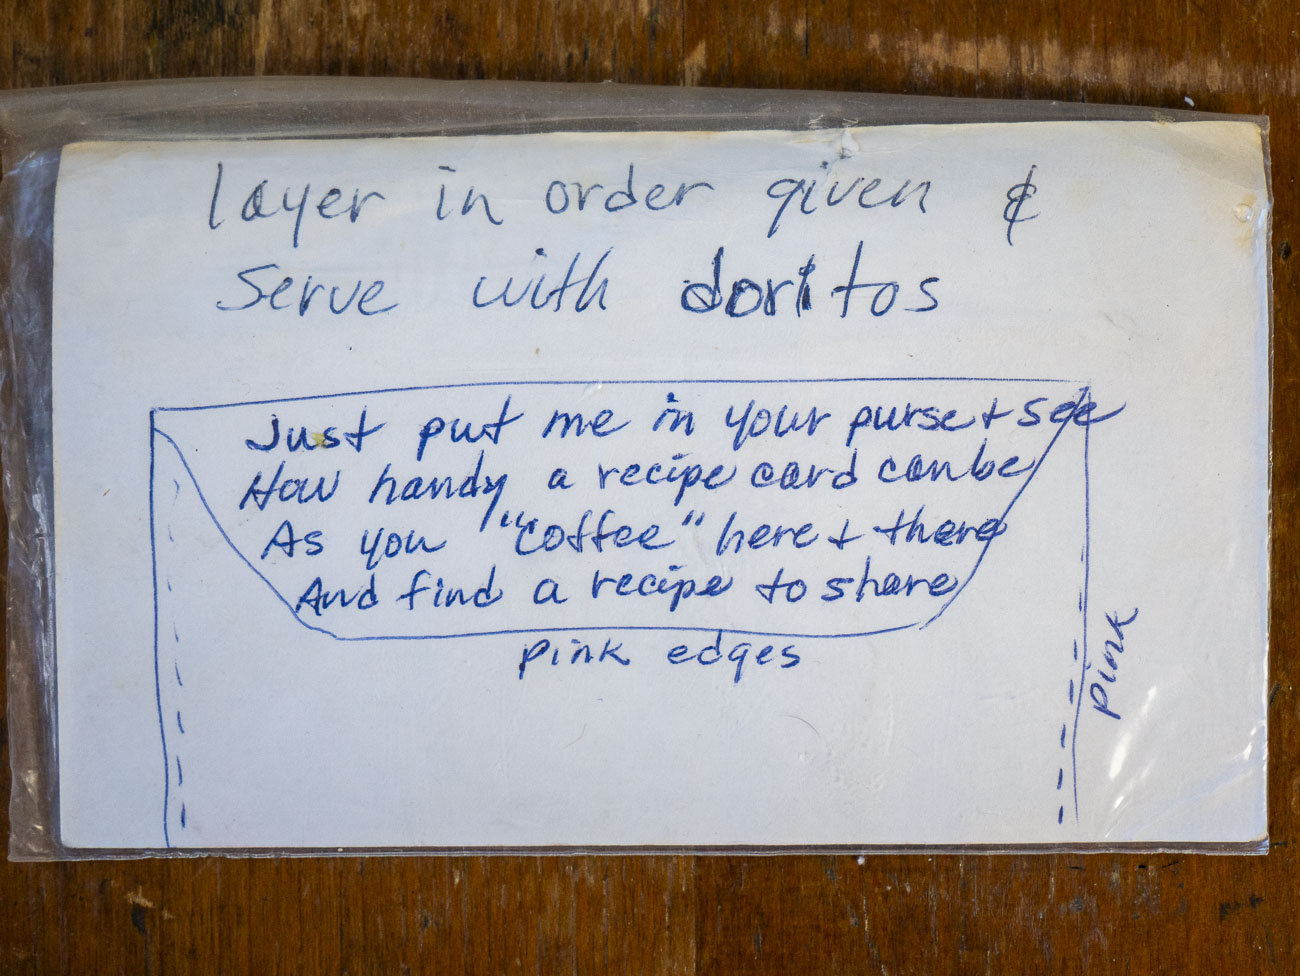 layer in order given &
serve with doritos
Just put me in your purse + see
How handy a recipe card can be
As you "coffee" here + there
And find a recipe to share
pink edges
pink